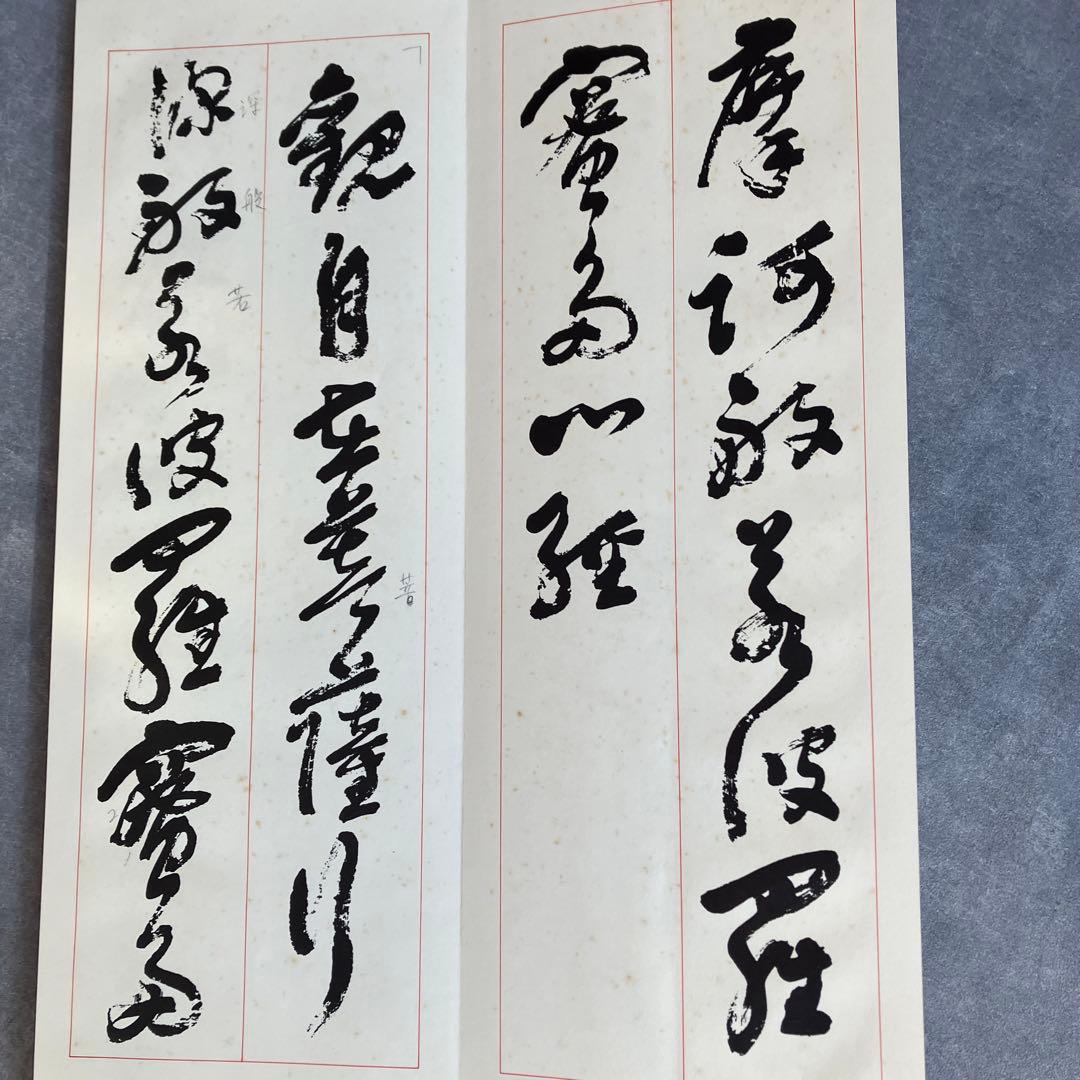 摩訶般若波羅
蜜多心經
觀自在菩薩行
菩
深般若波羅蜜多
深
般
若